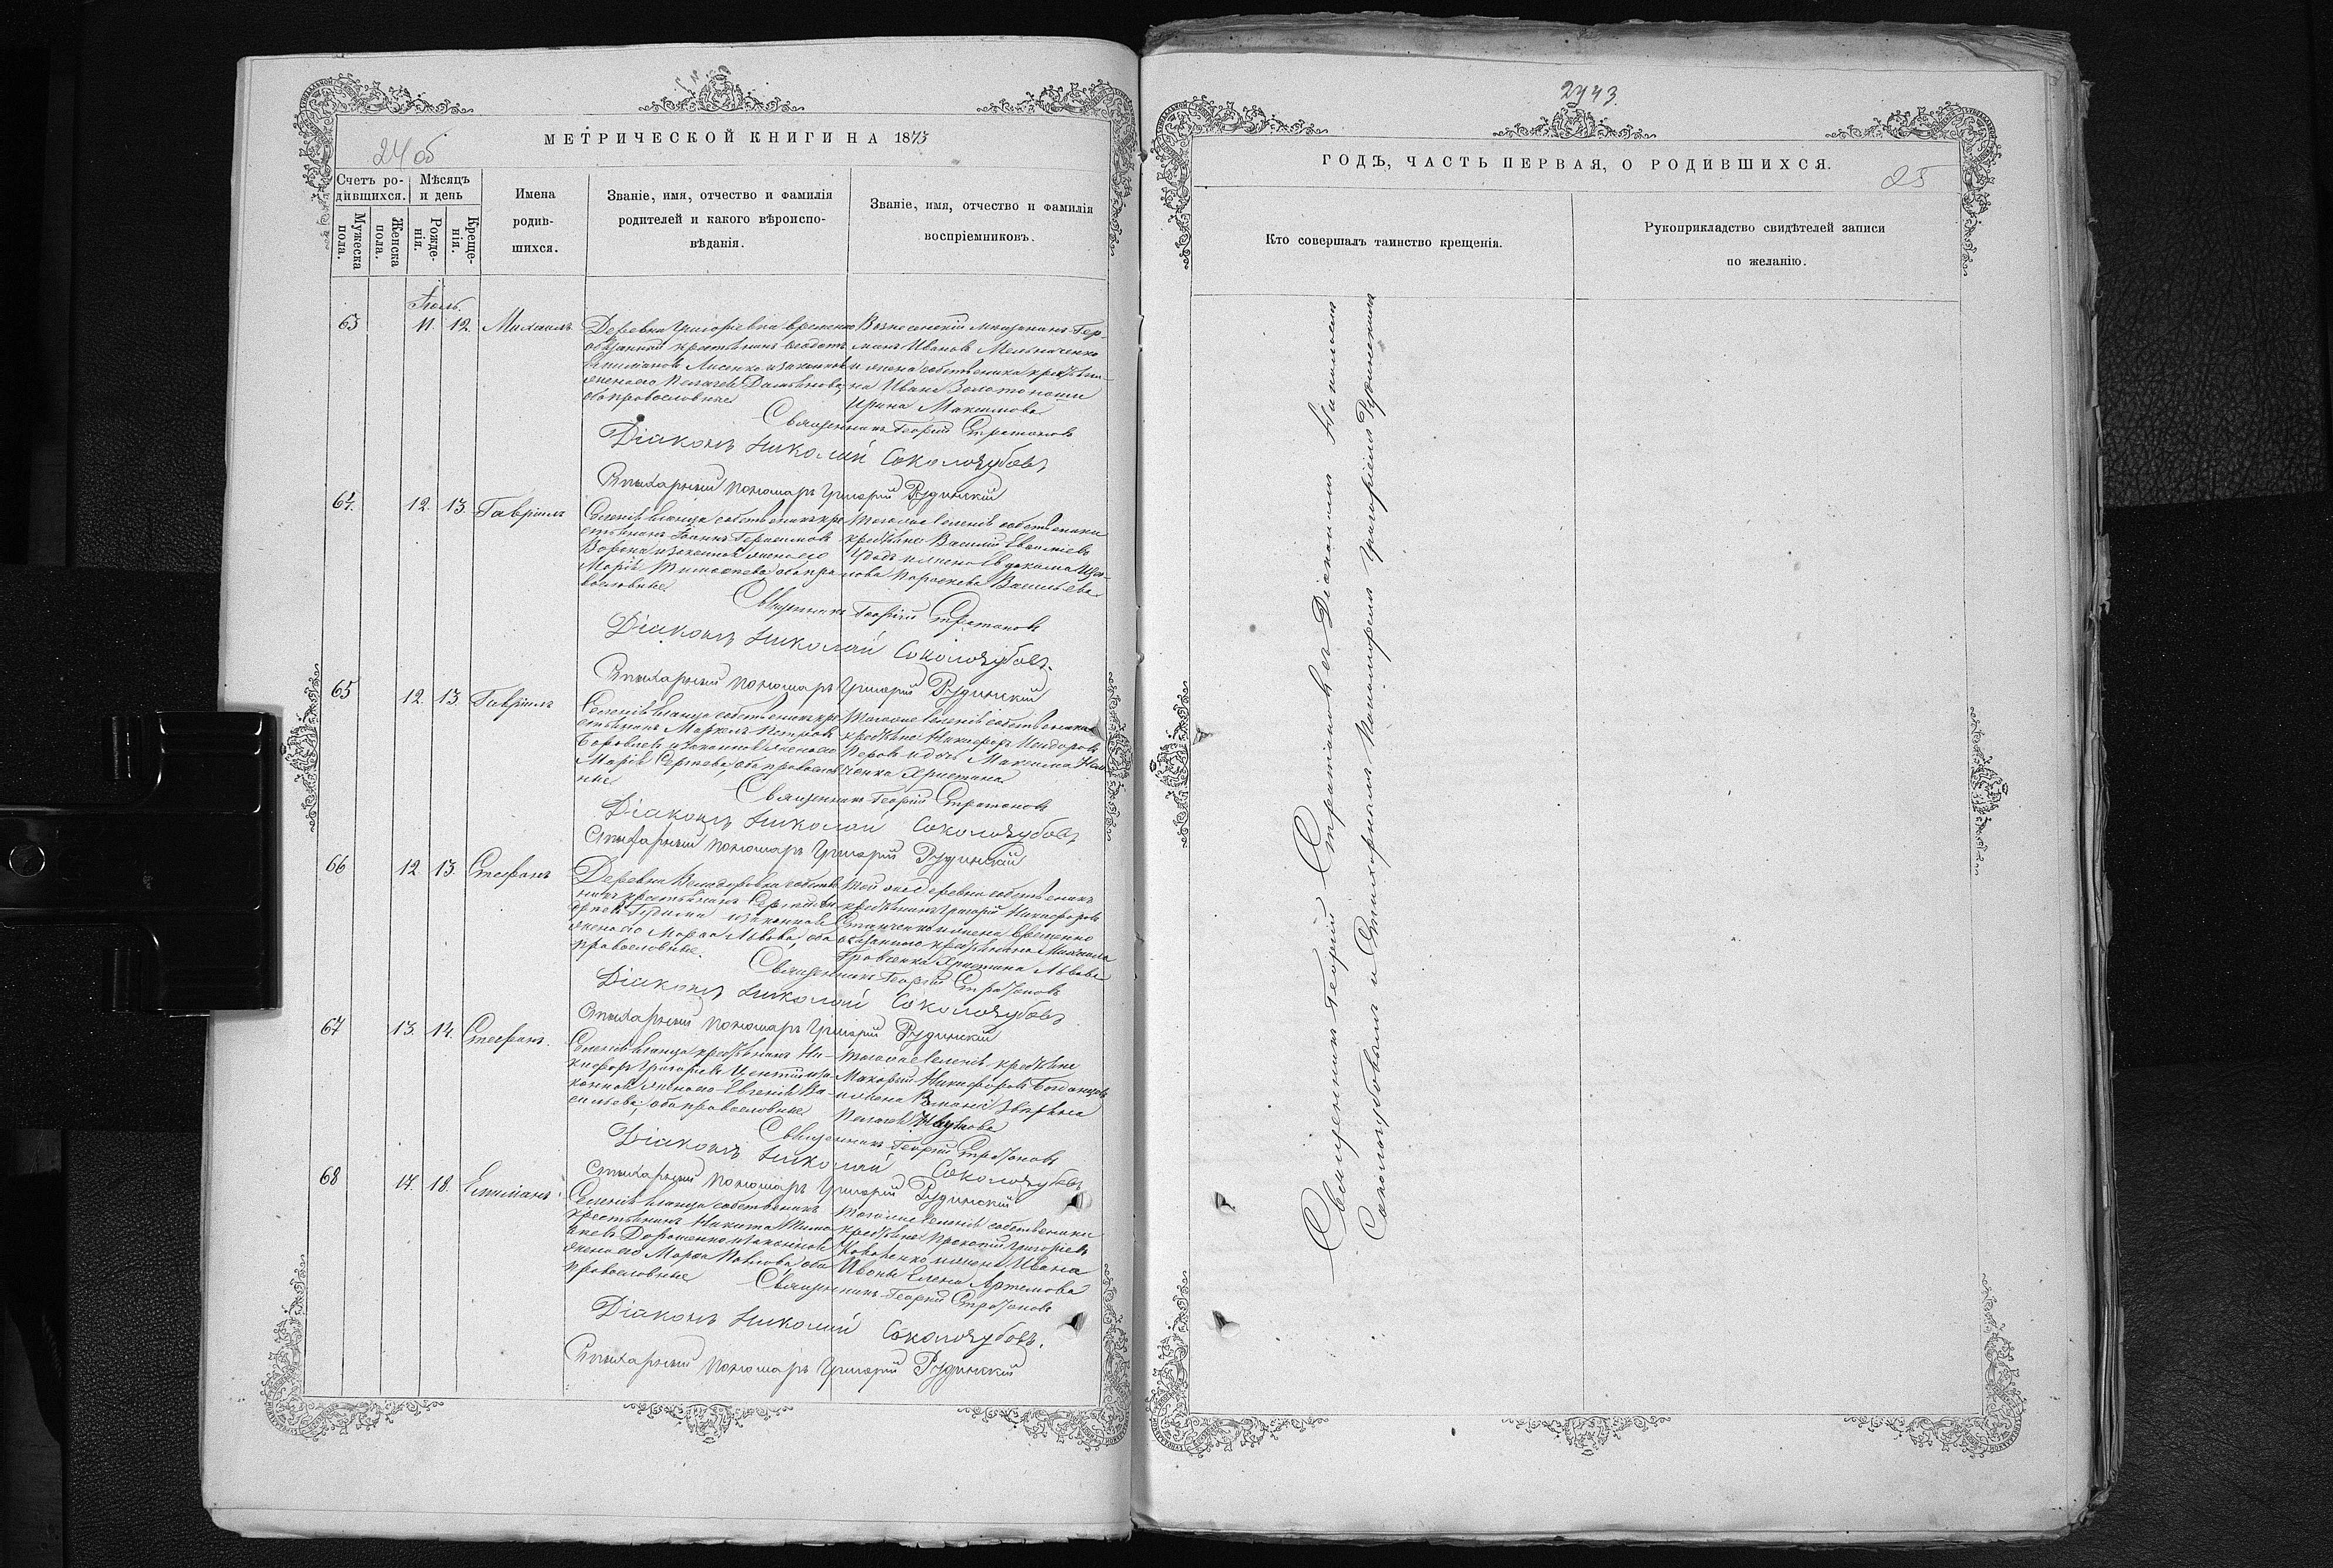 МЕТРИЧЕСКОЙ КНИГИ НА 1873
24 об
Счетъ ро-
дившихся.
Мѣсяцъ
и день
Мужеска
пола.
Женска
пола.
Рожде-
нія.
Креще-
нія.
Имена
родив-
шихся.
Званіе, имя, отчество и фамилія
родителей и какого вѣроиспо-
вѣданія.
Званіе, имя, отчество и фамилія
воспріемниковъ.
Іюль.
63 11. 12. Михаилъ
Деревни Григорьевки временно
обязанный крестьянинъ Ѳеодотъ
Лисенко и законная
жена его Пелагея Дамьянова,
оба православные
Вознесенскій мещанинъ Гер-
манъ Ивановъ Мельниченко
и жена собственника крестьяни-
на Ивана Золотоноши
Ирина Максимова
Священникъ Георгій Стратоновъ
Діаконъ Николай Сокологубовъ
Стихарный пономарь Григорій Рудинскій
64. 12. 13. Гавріилъ
Селенія собственникъ кре-
стьянинъ Іоаннъ Герасимовъ
Ворона и законная жена его
Марія Тимоѳеева оба пра-
вославные
Тогоже селенія собственники
крестьяне Василій Евѳиміевъ
и жена Евдокима
Параскева Васильева
Священникъ Георгій Стратоновъ
Діаконъ Николай Сокологубовъ.
Стихарный пономарь Григорій Рудинскій
65 12. 13. Гавріилъ
Селенія собственникъ кре-
стьянинъ Маркелъ Петровъ
и законная жена его
Марія Сергеева, оба православ-
ные
Тогоже селенія собственники
крестьяне Никифоръ Исидоровъ
и дочь Максима
Христина
Священникъ Георгій Стратоновъ
Діаконъ Николай Сокологубовъ
Стихарный пономарь Григорій Рудинскій
66 12. 13. Стефанъ
Деревни собствен-
никъ крестьянинъ Сергей
и законная
жена его Марѳа Львова, оба
православные.
Той же деревни собственникъ
крестьянинъ Григорій Никифоровъ
и жена временно
обязаннаго крестьянина Михаила
Христина Львова
Священникъ Георгій Стратоновъ
Діаконъ Николай Сокологубовъ
Стихарный пономарь Григорій Рудинскій
67 13. 14. Стефанъ.
Селенія крестьянинъ Ни-
кифоръ Григорьевъ и за-
конная жена его Евгенія Ва-
сильева, оба православные
Тогоже селенія крестьяне
Макарій Никифоровъ Богданцовъ
и жена
Пелагея Наумова
Священникъ Георгій Стратоновъ
Діаконъ Николай Сокологубовъ
Стихарный пономарь Григорій Рудинскій
68 17. 18. Емиліанъ
Селенія собственникъ
крестьянинъ Никита Тимо-
ѳеевъ Дорошенко и законная
жена его Марѳа Павлова, оба
православные
Тогоже селенія собственники
крестьяне Прокопій Григорьевъ
Коваленко и жена Ивана
Елена Артемова
Священникъ Георгій Стратоновъ
Діаконъ Николай Сокологубовъ.
Стихарный пономарь Григорій Рудинскій
2443.
ГОДЪ, ЧАСТЬ ПЕРВАЯ, О РОДИВШИХСЯ.
25
Кто совершалъ таинство крещенія.
Рукоприкладство свидѣтелей записи
по желанію.
Священникъ Георгій Стратоновъ съ Діакономъ Николаемъ
Сокологубовымъ и Стихарнымъ Пономаремъ Григоріемъ Рудинскимъ